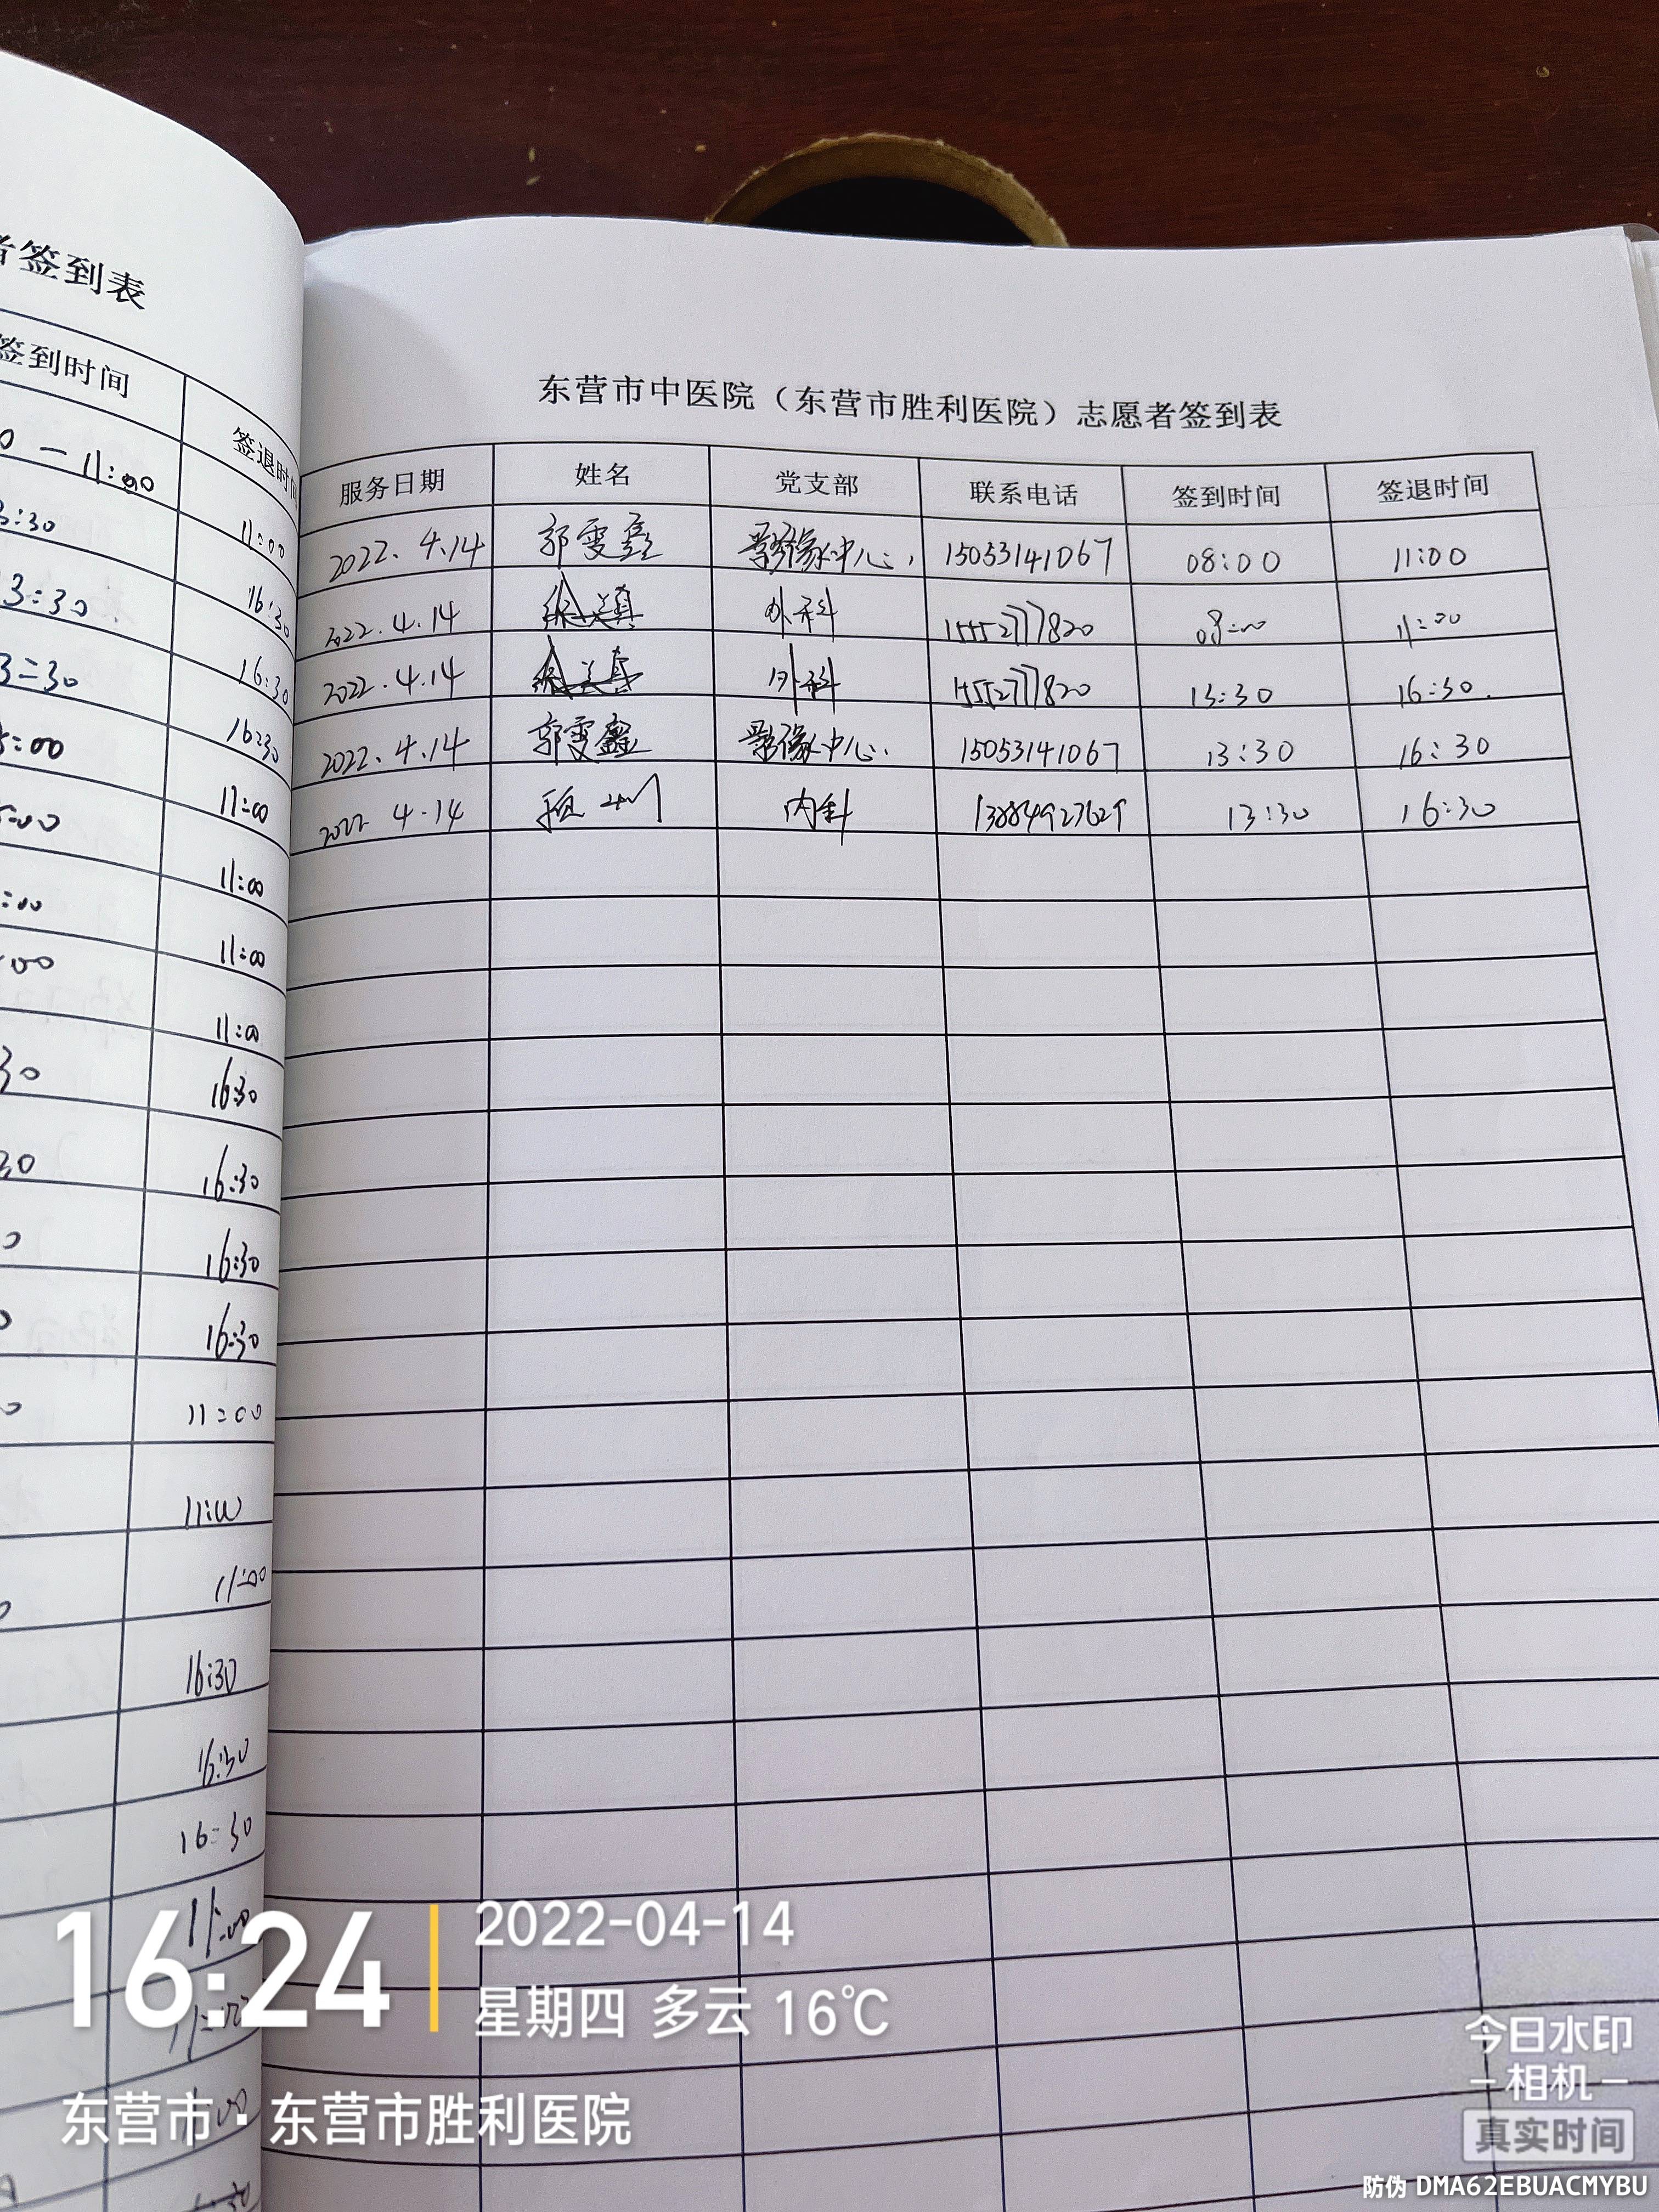 者签到表
签到时间 签退时间
0 — 11:00 11:00
3:30 16:30
13:30 16:30
3:30 16:30
8:00 11:00
8:00 11:00
:00 11:00
:00 11:00
30 16:30
30 16:30
0 16:30
0 16:30
0 11:00
11:00
0 11:00
16:30
16:30
16:30
11:00
东营市中医院（东营市胜利医院）志愿者签到表
服务日期 姓名 党支部 联系电话 签到时间 签退时间
2022.4.14 郭雯鑫 影像中心 15053141067 08:00 11:00
2022.4.14 外科 15552777820 08:00 11:00
2022.4.14 外科 15552777820 13:30 16:30.
2022.4.14 郭雯鑫 影像中心. 15053141067 13:30 16:30
2022 4.14 内科 13884927629 13:30 16:30
16:24 2022-04-14
星期四 多云 16℃
东营市·东营市胜利医院
今日水印
相机
真实时间
防伪 DMA62EBUACMYBU